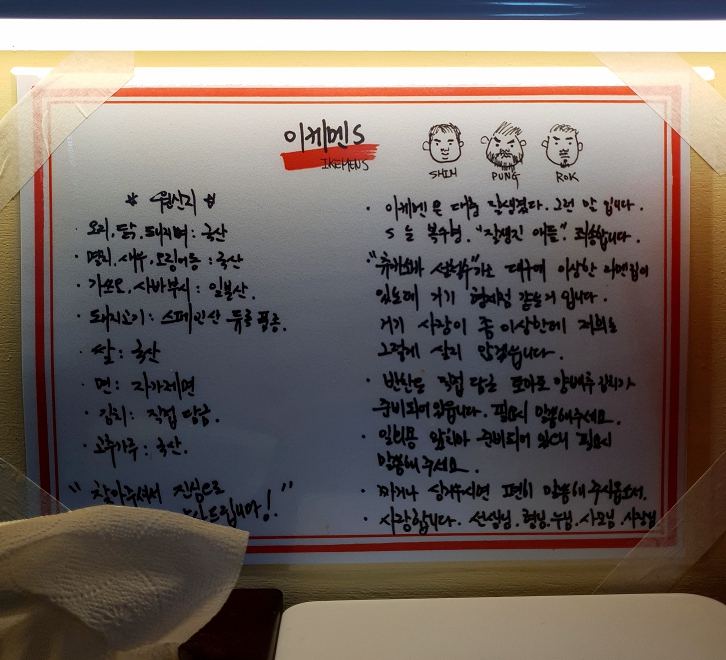 이케멘S
IKEMENS
SHIN
PUNG
ROK
* 원산지 *
· 오리, 닭, 돼지뼈 : 국산
· 멸치, 새우, 오징어등 : 국산
· 가쓰오, 사바부시 : 일본산.
· 돼지고기 : 스페인산 듀록 품종.
· 쌀 : 국산
· 면 : 자가제면
· 김치 : 직접 담금.
· 고춧가루 : 국산.
"찾아주셔서 진심으로
드립니다!"
· 이케멘은 대충 잘생겼다. 그런 말 입니다.
S는 복수형. "잘생긴 애들". 죄송합니다.
라고 대구에 이상한 라멘집이
있는데 거기 형제점 같은거 입니다.
거기 사장이 좀 이상한데 저희는
그렇게 살지 않겠습니다.
· 반찬은 직접 담근 토마토 양배추 김치가
준비되어 있습니다. 필요시 말씀해주세요.
· 일회용 앞치마 준비되어 있으니 필요시
말씀해주세요.
· 짜거나 싱거우시면 편히 말씀해 주시옵소서.
· 사랑합니다. 선생님, 형님, 누님, 사모님, 사장님